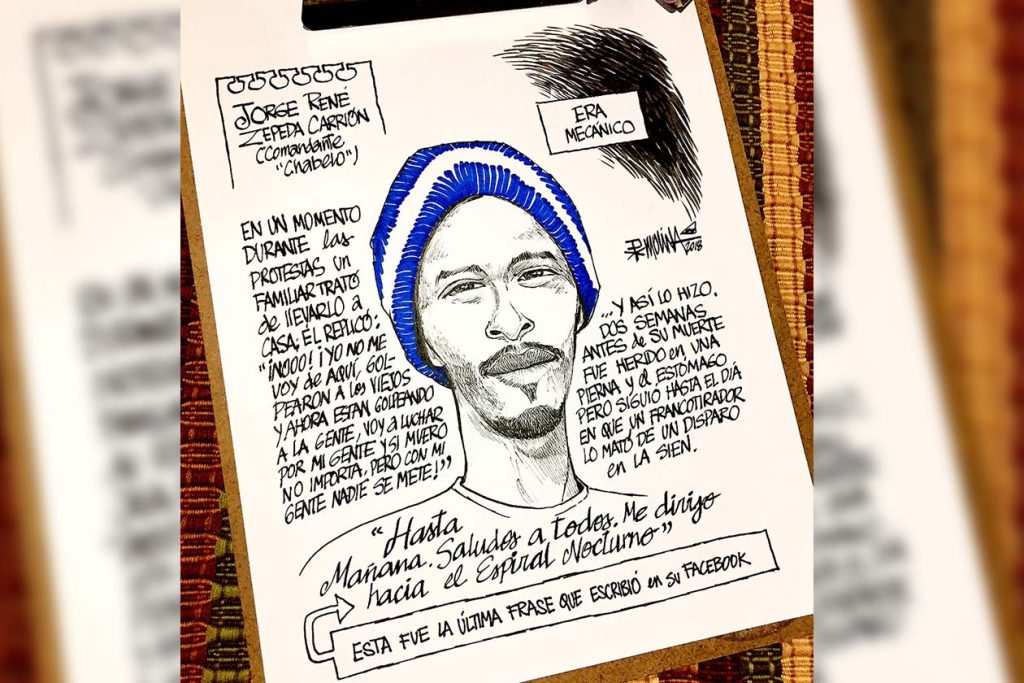 JORGE RENÉ
ZEPEDA CARRIÓN
(Comandante
"Chabelo")
ERA
MECÁNICO
PXMOLINA
2018
EN UN MOMENTO
DURANTE las
PROTESTAS un
FAMILIAR TRATÓ
de llEVARLO a
CASA, ÉL REPLICÓ:
"¡NOOO! ¡YO NO ME
VOY de AQUÍ, GOL-
PEARON A LOS VIEJOS
Y AHORA ESTÁN GOLPEANDO
A LA GENTE, VOY a LUCHAR
POR MI GENTE Y SI MUERO
NO IMPORTA, PERO CON MI
GENTE NADIE SE METE!"
...Y ASÍ LO HIZO.
DOS SEMANAS
ANTES de SU MUERTE
FUE HERIDO en UNA
PIERNA, y el ESTÓMAGO
PERO SIGUIÓ HASTA EL DÍA
EN QUE UN FRANCOTIRADOR
LO MATÓ DE UN DISPARO
en LA SIEN.
"Hasta
Mañana. Saludos a todos. Me dirijo
hacia el Espiral Nocturno"
ESTA FUE LA ÚLTIMA FRASE QUE ESCRIBIÓ en su FACEBOOK